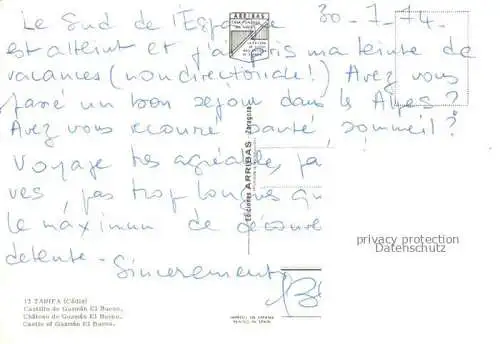 30-7-74.
Le Sud de l'Espagne
est atteint et j'ai pris ma teinte de
vacances (non directoriale!) Avez vous
passé un bon séjour dans les Alpes?
Avez vous recouvré santé, sommeil?
Voyage très agréable,
ves, pas trop longues
le máximun de
detente - Sincerement
ARRIBAS
Ediciones ARRIBAS - Zaragoza
privacy protection
Datenschutz
12 TARIFA (Cádiz)
Castillo de Guzmán El Bueno.
Château de Guzmán El Bueno.
Castle of Guzmán El Bueno.
IMPRESO EN ESPAÑA
PRINTED IN SPAIN